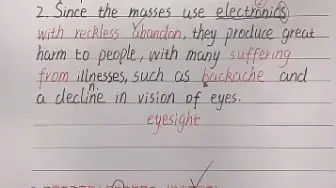 2. Since the masses use electronics
with reckless abandon, they produce great
harm to people, with many suffering
from illnesses, such as backache and
n.
a decline in vision of eyes.
eyesight